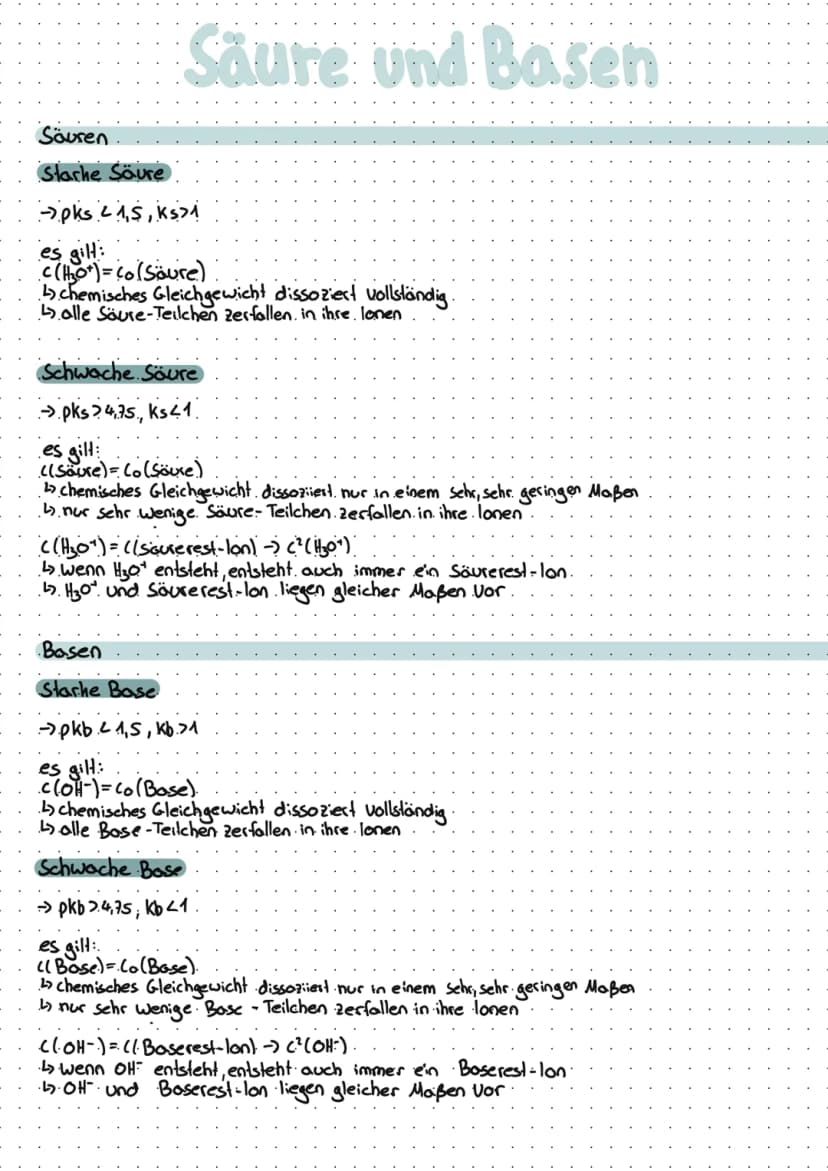 Säure und Basen
Säuren
Starke Säure
→ pks < 1,5, Ks>1
es gilt:
c(H₃O⁺)= c₀(Säure)
↳ chemisches Gleichgewicht dissoziert vollständig
↳ alle Säure-Teilchen zerfallen in ihre Ionen
Schwache Säure
→ pks > 4,75, Ks<1
es gilt:
c(Säure)= c₀(Säure)
↳ chemisches Gleichgewicht dissoziiert nur in einem sehr, sehr geringen Maßen
↳ nur sehr wenige Säure-Teilchen zerfallen in ihre Ionen
c(H₃O⁺)= c(säurerest-Ion) → c²(H₃O⁺)
↳ wenn H₃O⁺ entsteht, entsteht auch immer ein Säurerest-Ion
↳ H₃O⁺ und Säurerest-Ion liegen gleicher Maßen vor
Basen
Starke Base
→ pkb < 1,5, Kb >1
es gilt:
c(OH⁻)= c₀(Base)
↳ chemisches Gleichgewicht dissoziert vollständig
↳ alle Base-Teilchen zerfallen in ihre Ionen
Schwache Base
→ pkb > 4,75, Kb <1
es gilt:
c(Base)= c₀(Base)
↳ chemisches Gleichgewicht dissoziiert nur in einem sehr, sehr geringen Maßen
↳ nur sehr wenige Base - Teilchen zerfallen in ihre Ionen
c(OH⁻)= c(Baserest-Ion) → c²(OH⁻)
↳ wenn OH⁻ entsteht, entsteht auch immer ein Baserest-Ion
↳ OH⁻ und Baserest-Ion liegen gleicher Maßen vor